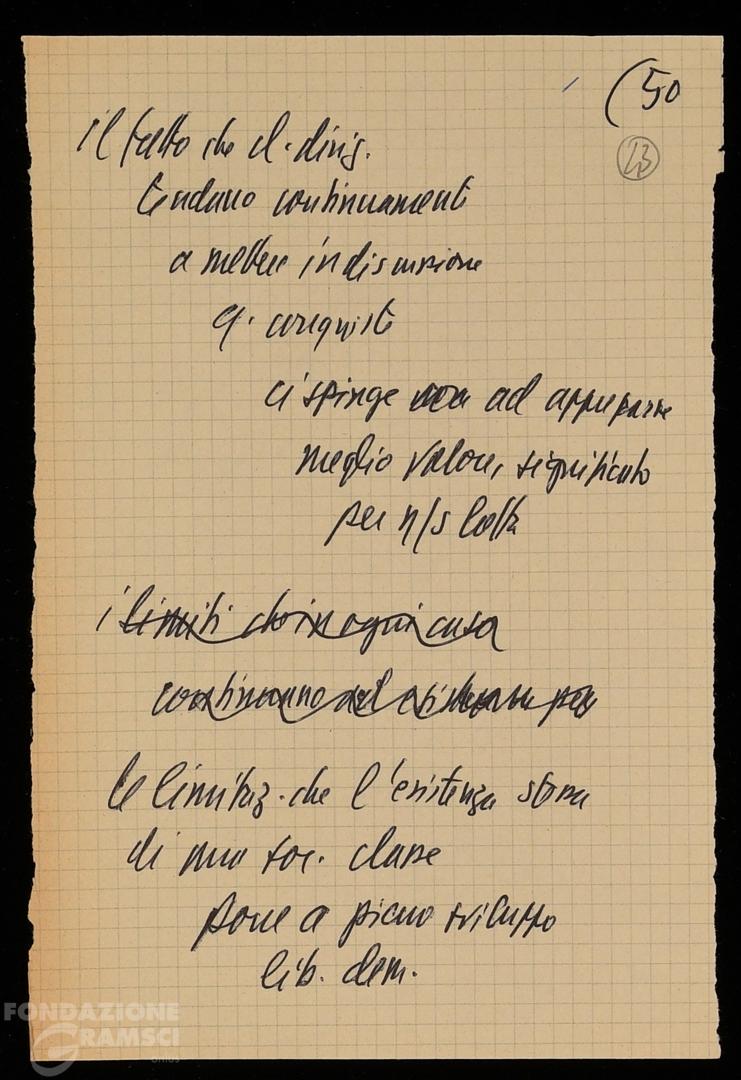 (50
13
il fatto che cl. dirig.
tendano continuamente
a mettere in discussione
q. conquiste
ci spinge ad apprezzare
meglio valore, significato
per n/s lotta
i limiti che in ogni cosa
continuano ad esistere per
le limitaz. che l'esistenza stessa
di una soc. classe
pone a pieno sviluppo
lib. dem.
FONDAZIONE
GRAMSCI
onlus